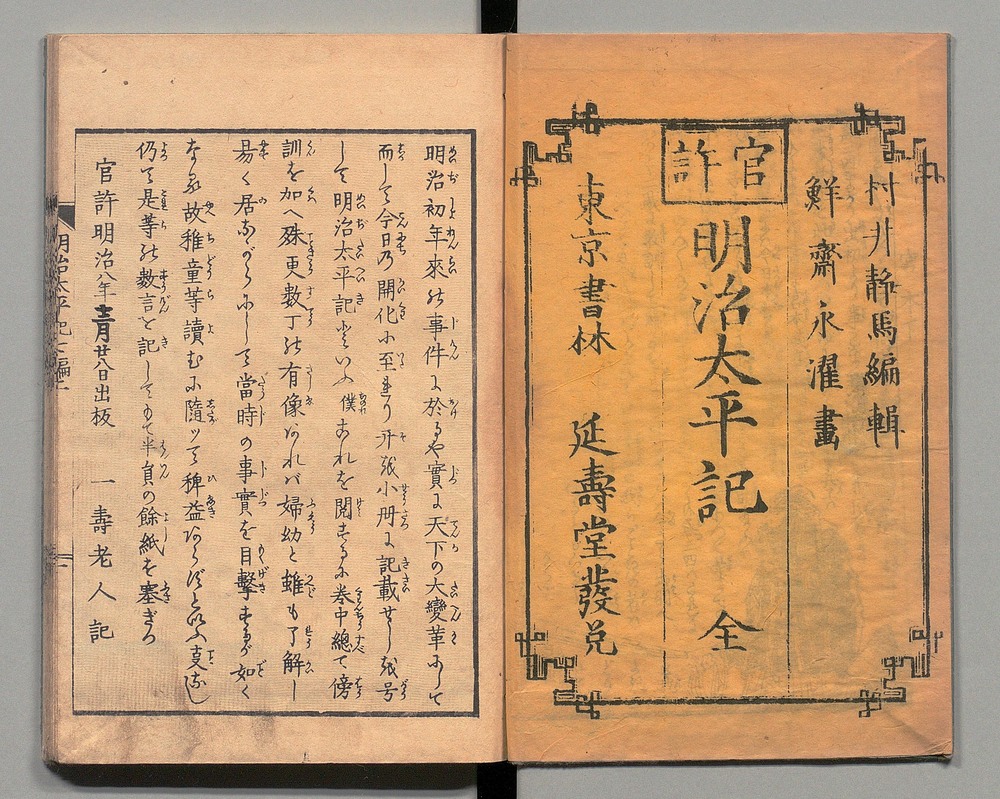 村井静馬編輯
鮮齋永濯畫
官許
明治太平記 全
東京書林 延壽堂發兌
明治初年來の事件に於るや實に天下の大變革にして
而して今日の開化に至まり 小册に記載せし 号
して明治太平記といふ僕これを閲するに巻中總て傍
訓を加へ殊更數丁の有像なれバ婦幼と雖も了解し
易く居ながらにして當時の事實を目擊するが如く
なる故稚童等讀むに隨ツて稗益
仍て是等の數言を記してもて半頁の餘紙を塞ぎつ
官許明治八年十二月廿八日出板 一壽老人記
明治太平記七編